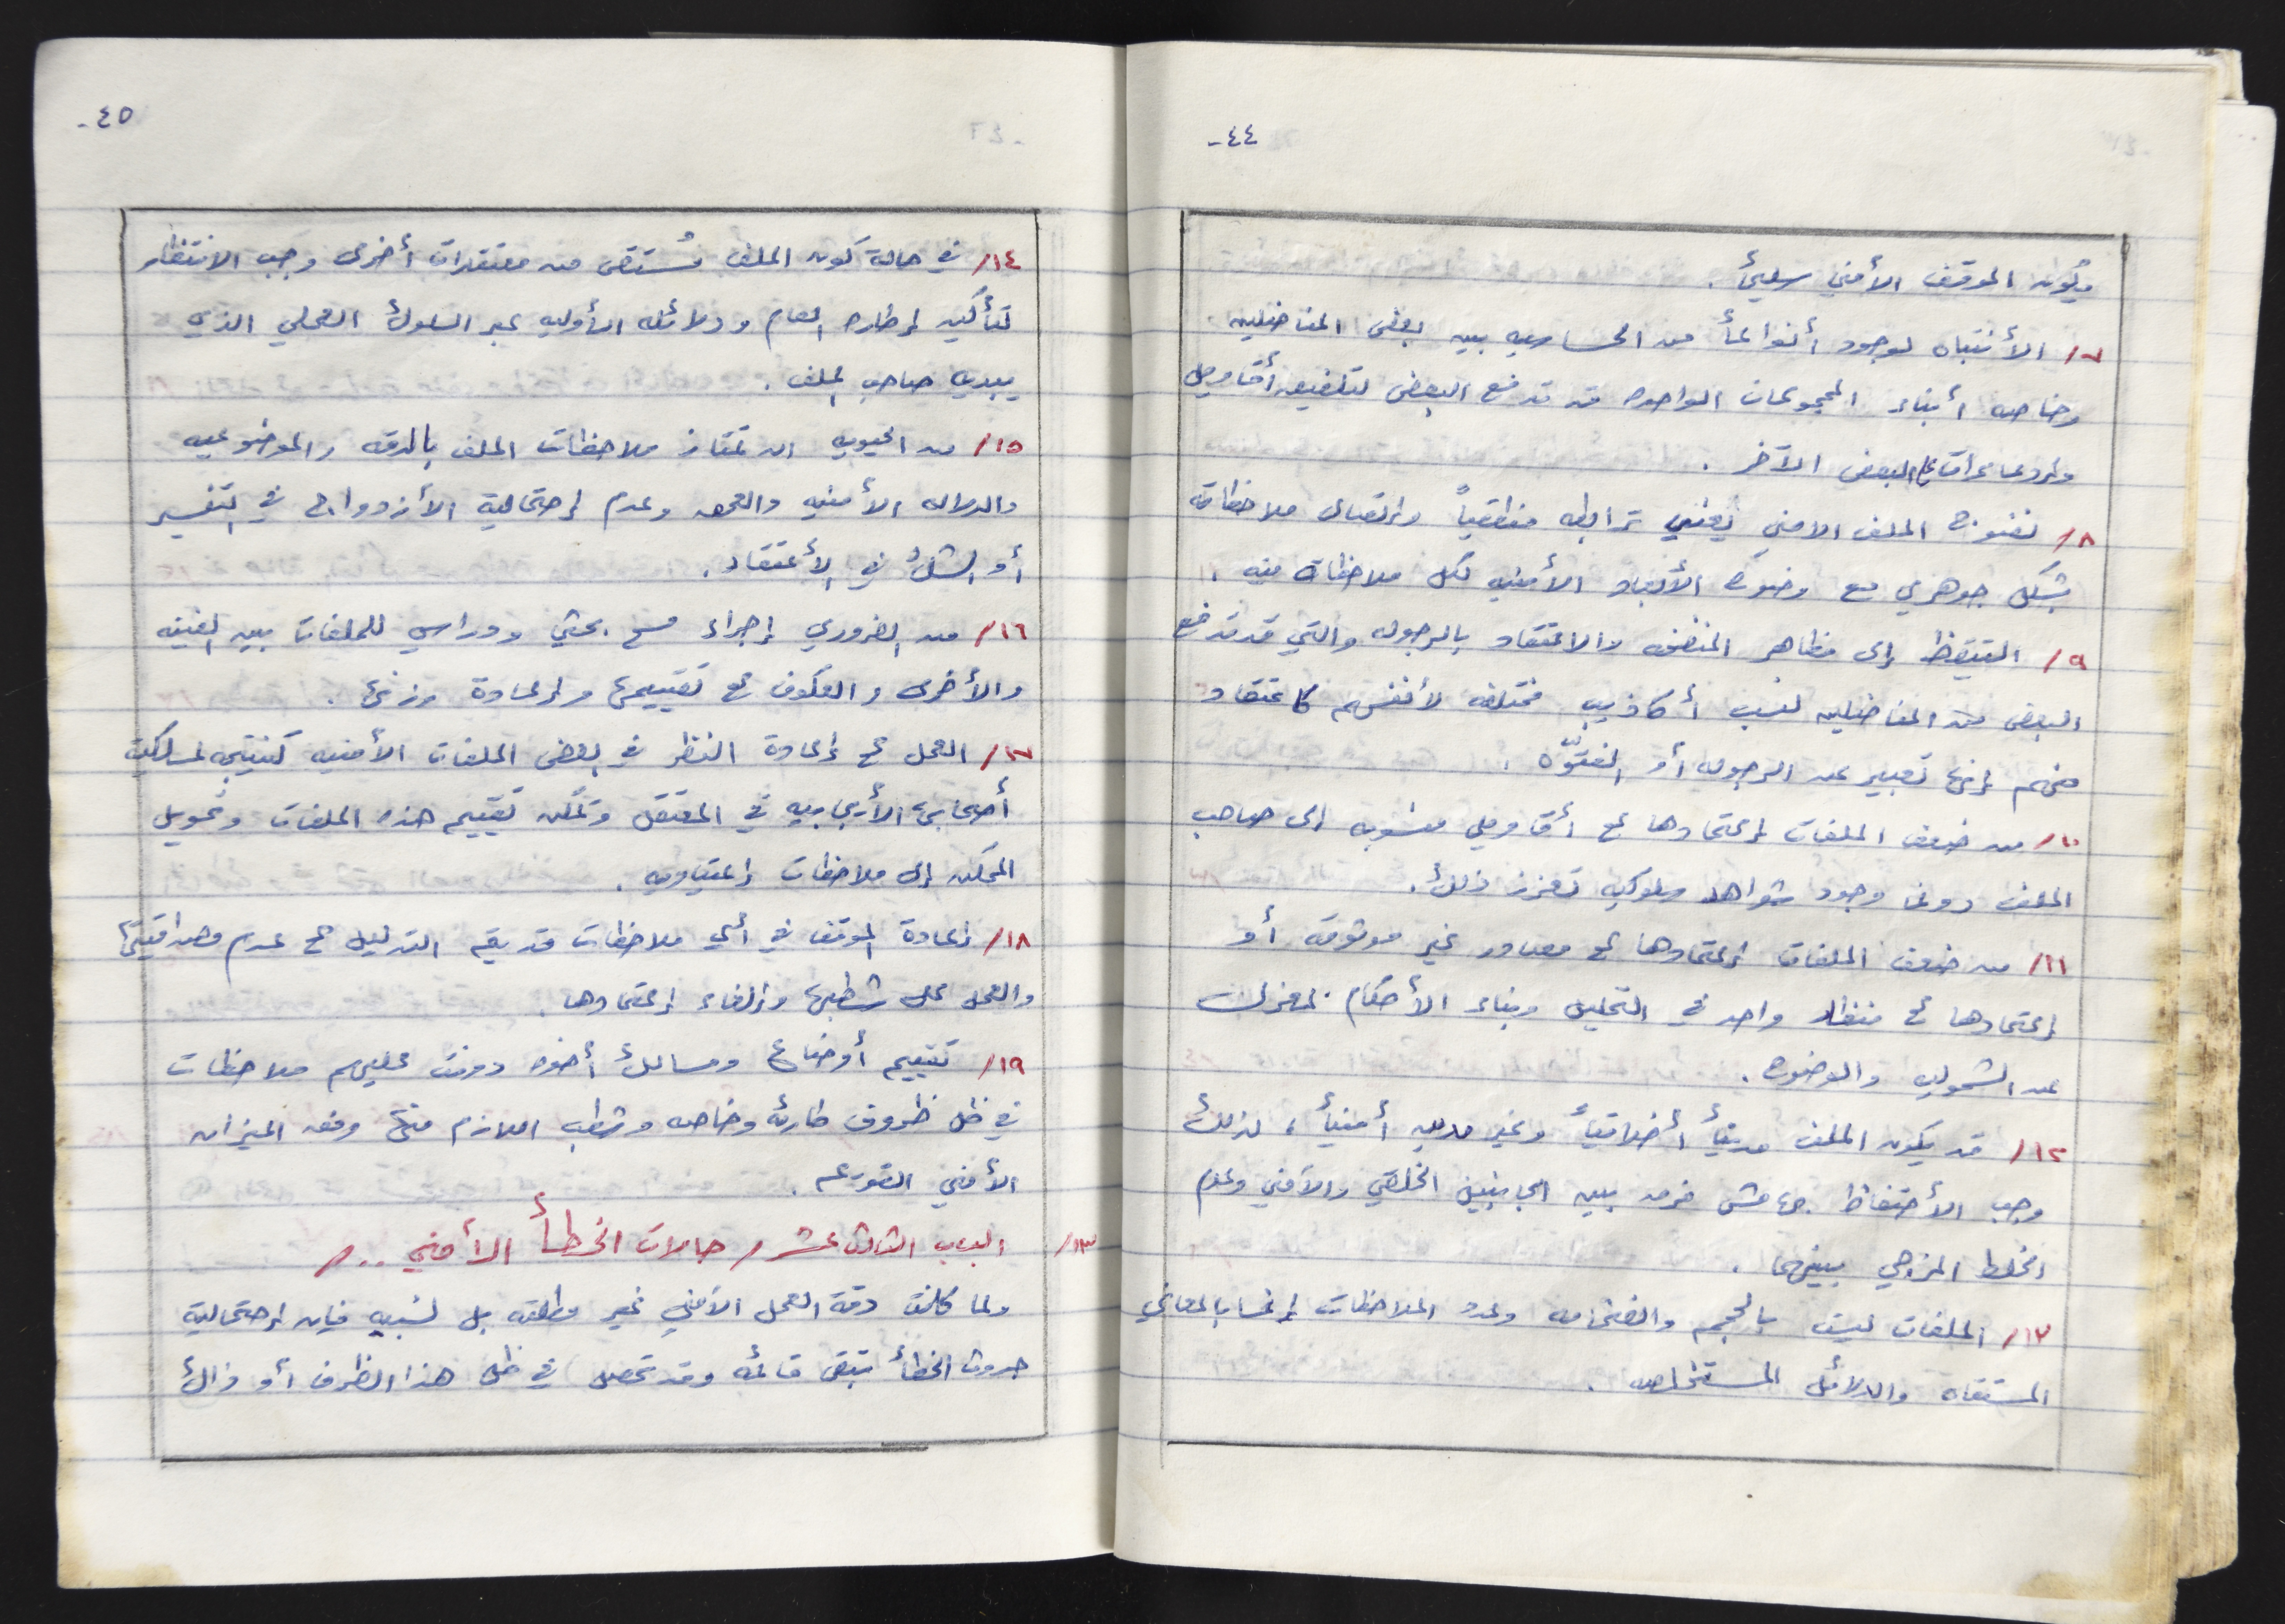 -٤٤
ويكون الموقف الأمني سليمأ .
٧/ الأنتباه لوجود أنواعأ من الحساسيه بين بعض المناضلين
وخاصه أبناء المجموعات الواحده قد تدفع البعض لتلفيق أقاويل
وإدعاءات على البعض الآخر .
٨/ نضوج الملف الامني يعني ترابطه منطقياً وإتصال ملاحظاته
بشكل جوهري مع وضوح الأبعاد الأمنيه لكل ملاحظات منه .
٩/ التيقظ إلى مظاهر والاعتقاد بالرجوله والتي قد تدفع
البعض من المناضلين لنسب أكاذيب مختلفه لأنفسهم كاعتقاد
منهم إنها تعبير عن الرجوله أو الفتوّه .
١٠/ من ضعف الملفات إعتمادها على أقاويل منسوبه الى صاحب
الملف دونما وجود شواهد سلوكيه تعزز ذلك .
١١/ من ضعف الملفات إعتمادها على مصادر غير موثوقه أو
إعتمادها على منظار واحد في التحليل وبناء الأحكام بمعزل
عن الشموليه والوضوح .
١٢/ قد يكون الملف مدينأ أخلاقيأ وغير مدين أمنيأ ، لذلك
وجب الأحتفاظ بهامش فرق بين الجانبين الخلقي والأمني وعدم
الخلط المزجي بينهما .
١٣/ الملفات ليست بالحجم والضخامه وعدد الملاحظات إنما بالمعاني
المستقاه والدلائل المستخلصه .
-٤٥
١٤/ في حالة كون الملف مُستقى من معتقلات أخرى وجب الانتظار
لتأكيد إطاره العام ودلائله الأوليه عبر السلوك العملي الذي
يبديه صاحب الملف .
١٥/ من الحيويه ان تمتاز ملاحظات الملف بالدقه والموضوعيه
والدلاله الأمنيه والعمق وعدم إحتمالية الأزدواج في التفسير
أو الشك في الأعتقاد .
١٦/ من الضروري إجراء مسح بحثي ودراسي للملفات بين الفينه
والأخرى والعكوف على تقييمها وإعادة وزنها .
١٧/ العمل على إعادة النظر في بعض الملفات الأمنيه كنتيجه لمسلكيه
أصحابها الأيجابيه في المعتقل وتمكن تقييم هذه الملفات وتحويل
الممكن إلى ملاحظات إعتياديه .
١٨/ إعادة الموقف في أي ملاحظات قد يتم التدليل على عدم مصداقيتها
والعمل على شطبها وإلغاء إعتمادها .
١٩/ تقييم أوضاع ومسالك أخوه دونت عليهم ملاحظات
في ظل ظروف طارئه وخاصه وشطب اللازم منها وفق الميزان
الأمني القويم .
١٣/ الباب الثالث عشر / حالات الخطأ الأمني ../
ولما كانت دقة العمل الأمني غير مطلقه بل نسبيه فإن إحتمالية
حدوث الخطأ تبقى قائمه وقد تحصل في ظل هذا الظرف أو ذاك